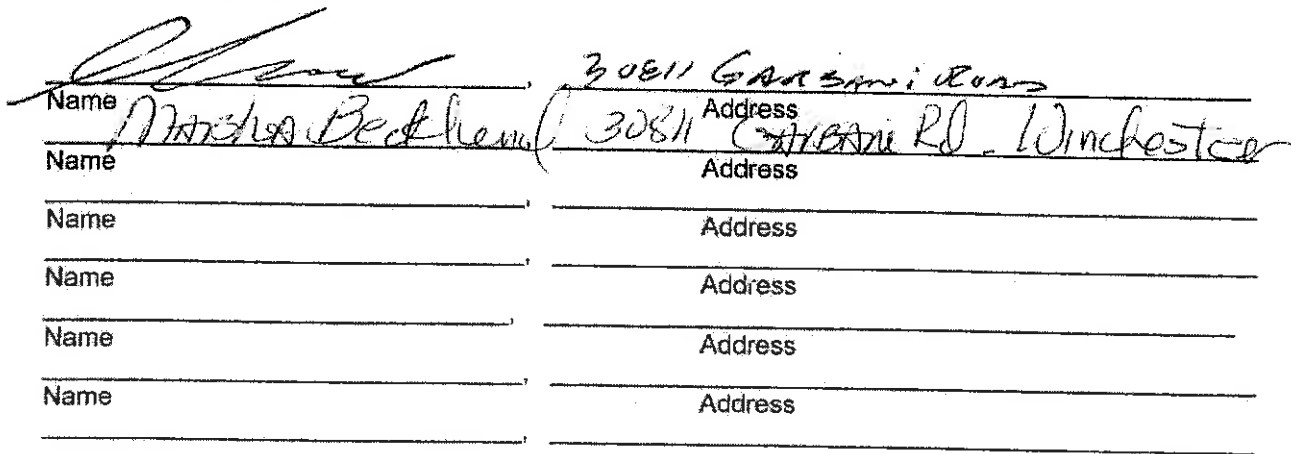 30811 GARBANI ROAD
Name Address
Marsha Beckhend 30811 GARBANI Rd. Winchester
Name Address
Name Address
Name Address
Name Address
Name Address